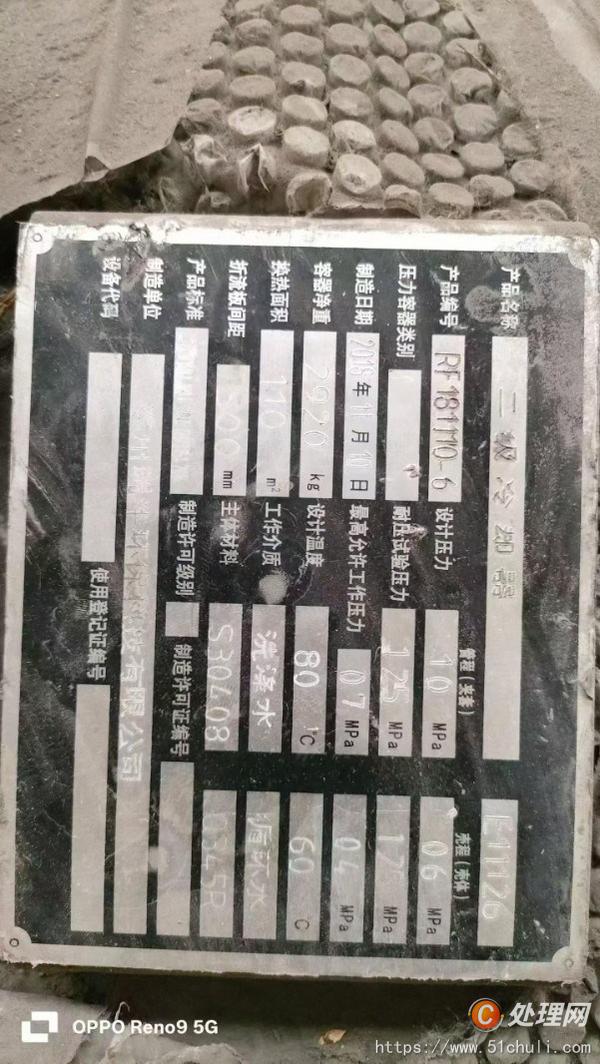 产品名称 二级冷却器 E11126
管程(夹套) 壳程(壳体)
产品编号 RF181110-6 设计压力 1.0 MPa 0.6 MPa
压力容器类别 耐压试验压力 1.25 MPa MPa
制造日期 年 11 月 10 日 最高允许工作压力 0.7 MPa 0.4 MPa
容器净重 2920 kg 设计温度 80 ℃ 60 ℃
换热面积 110 m² 工作介质 洗涤水 循环水
折流板间距 mm 主体材料 S30408 Q345R
产品标准 制造许可级别 制造许可证编号
制造单位 有限公司
设备代码 使用登记证编号
OPPO Reno9 5G
C 处理网
https://www.51chuli.com